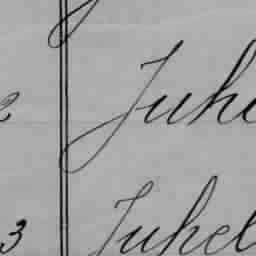 2 Juhe
3 Juhel